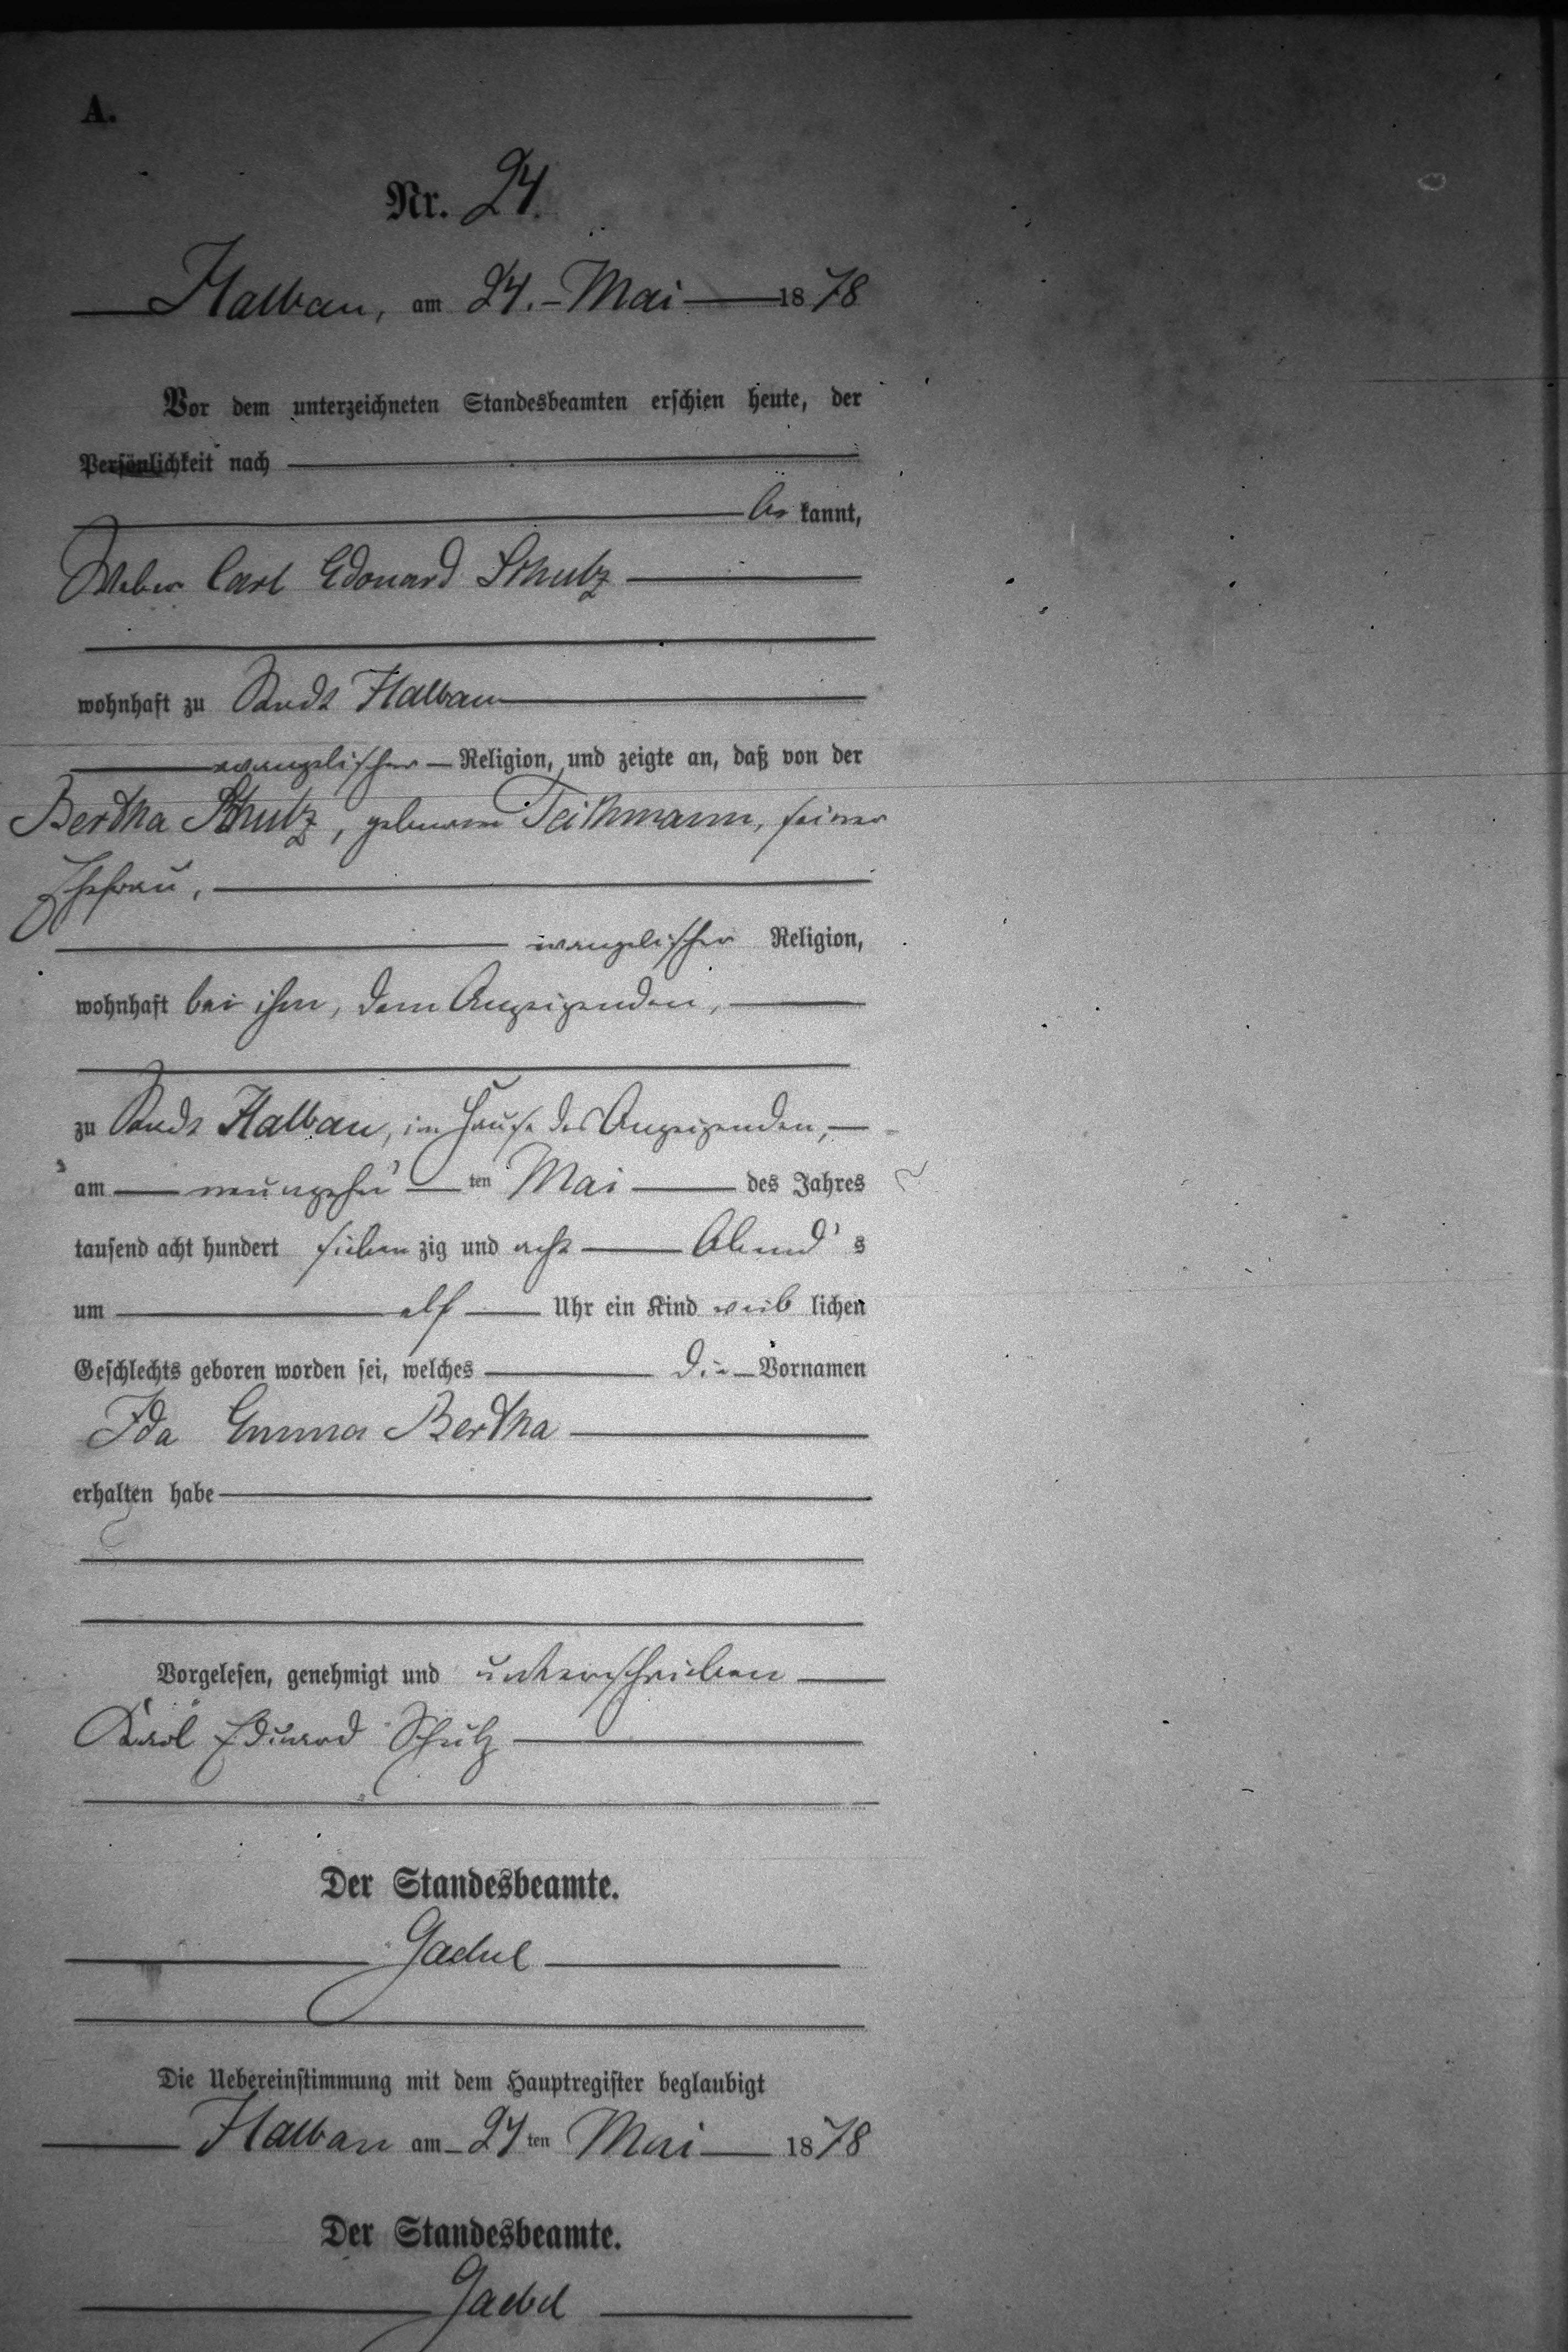 A.
Nr. 24.
Halbau, am 24. Mai 1878
Vor dem unterzeichneten Standesbeamten erschien heute, der
Persönlichkeit nach
be kannt,
Weber Carl Edouard Schulz
wohnhaft zu Stadt Halbau
evangelischer Religion, und zeigte an, daß von der
Bertha Schulz, geborene Teichmann, seiner
Ehefrau,
evangelischer Religion,
wohnhaft bei ihm, dem Anzeigenden,
zu Stadt Halbau, im Hause des Anzeigenden,
am neunzehn ten Mai des Jahres
tausend acht hundert sieben zig und acht Abend s
um elf Uhr ein Kind weib lichen
Geschlechts geboren worden sei, welches die Vornamen
Ida Emma Bertha
erhalten habe
Vorgelesen, genehmigt und unterschrieben
Karl Eduard Schulz
Der Standesbeamte.
Gaebel
Die Uebereinstimmung mit dem Hauptregister beglaubigt
Halbau am 24 ten Mai 1878
Der Standesbeamte.
Gaebel